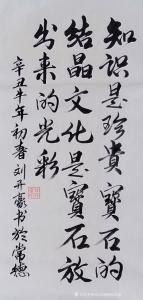 知识是珍貴寶石的
结晶文化是寶石放
出来的光彩
辛丑牛年初春刘开豪书於常德